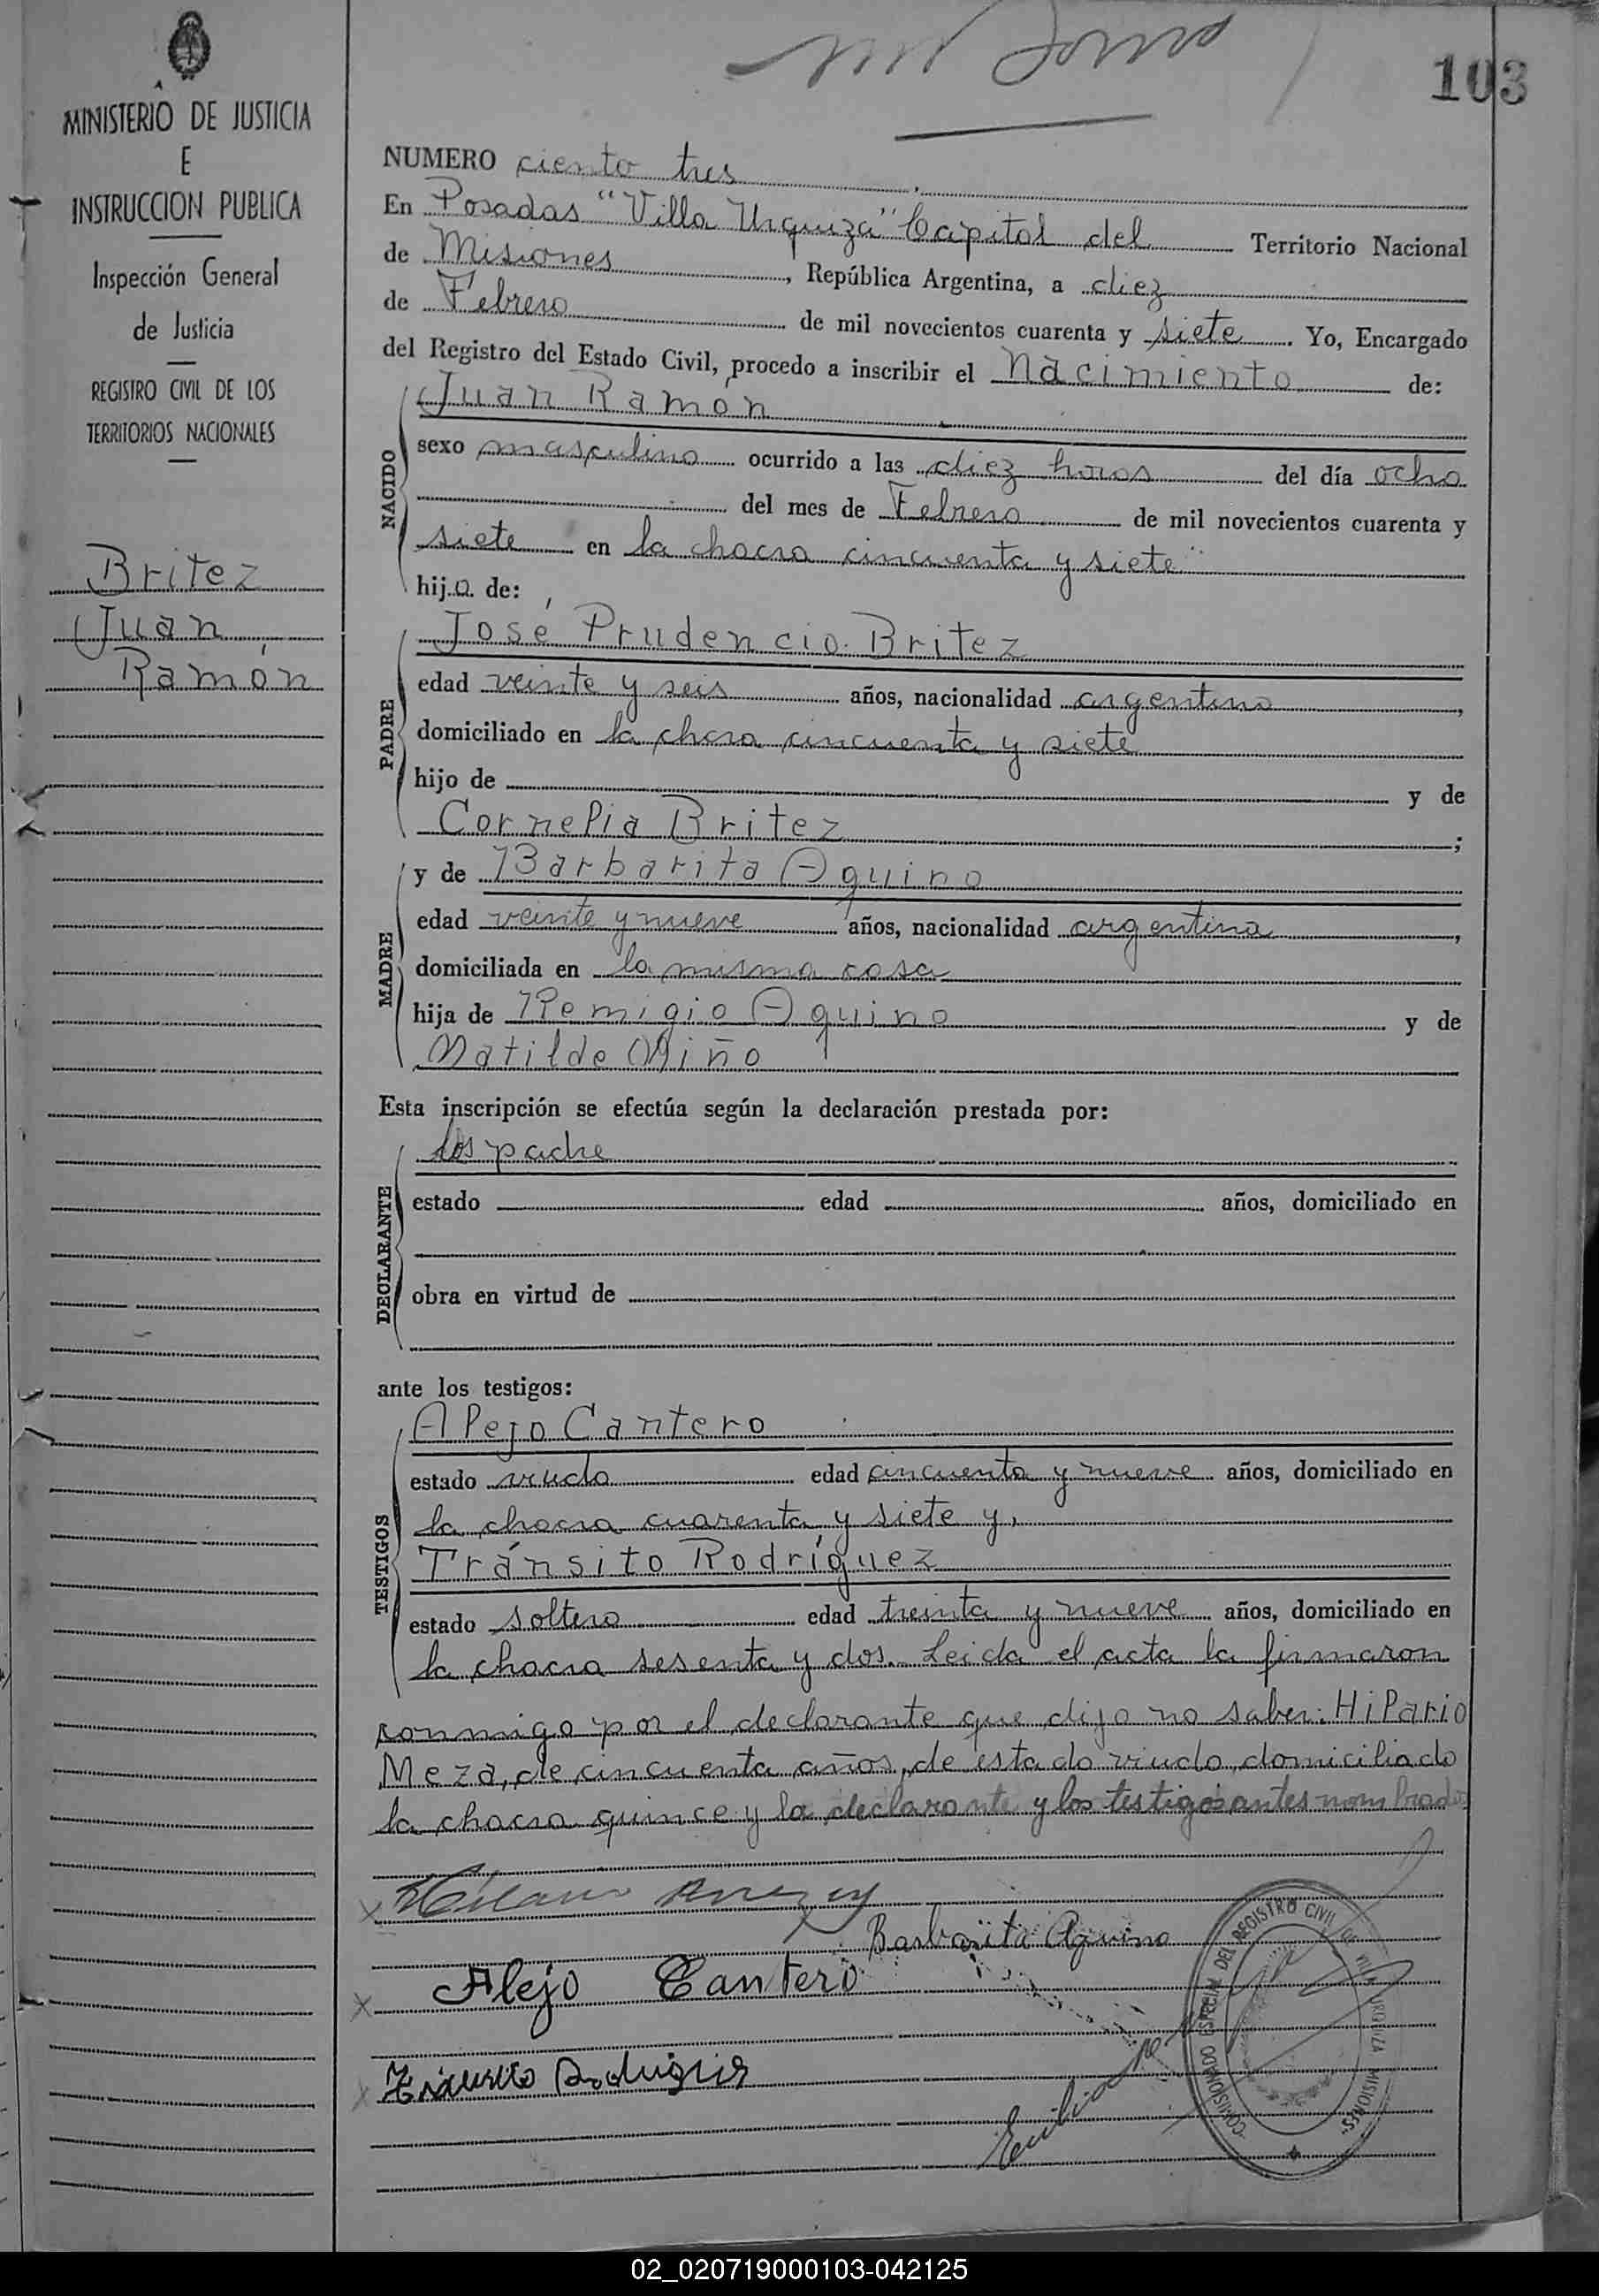 103
MINISTERIO DE JUSTICIA
E
INSTRUCCION PUBLICA
Inspección General
de Justicia
REGISTRO CIVIL DE LOS
TERRITORIOS NACIONALES
Britez
Juan
Ramón
NUMERO ciento tres
En Posadas "Villa Urquiza" Capital del Territorio Nacional
de Misiones, República Argentina, a diez
de Febrero de mil novecientos cuarenta y siete. Yo, Encargado
del Registro del Estado Civil, procedo a inscribir el Nacimiento de:
NACIDO
Juan Ramón
sexo masculino ocurrido a las diez horas del día ocho
del mes de Febrero de mil novecientos cuarenta y
siete en la chacra cincuenta y siete
hijo de:
PADRE
José Prudencio Britez
edad veinte y seis años, nacionalidad argentino,
domiciliado en la chcra cincuenta y siete
hijo de y de
Cornelia Britez;
MADRE
y de Barbarita Aquino
edad veinte y nueve años, nacionalidad argentina,
domiciliada en la misma casa
hija de Remigio Aquino y de
Matilde Miño
Esta inscripción se efectúa según la declaración prestada por:
DECLARANTE
los padre
estado edad años, domiciliado en
obra en virtud de
ante los testigos:
TESTIGOS
Alejo Cantero
estado viudo edad cincuenta y nueve años, domiciliado en
la chacra cuarenta y siete y,
Tránsito Rodríguez
estado soltero edad treinta y nueve años, domiciliado en
la chacra sesenta y dos. Leida el acta la firmaron
conmigo por el declarante que dijo no saber: Hilario
Meza, de cincuenta años, de estado viudo, domiciliado
la chacra quince y la declarante y los testigos antes nombrados
Barbarita Aquino
Alejo Cantero
COMISIONADO ESPECIAL DEL REGISTRO CIVIL DE VILLA URQUIZA MISIONES
02_020719000103-042125